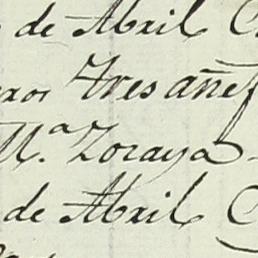 de Abril
Tres añes
M.ª Zoraya
de Abril